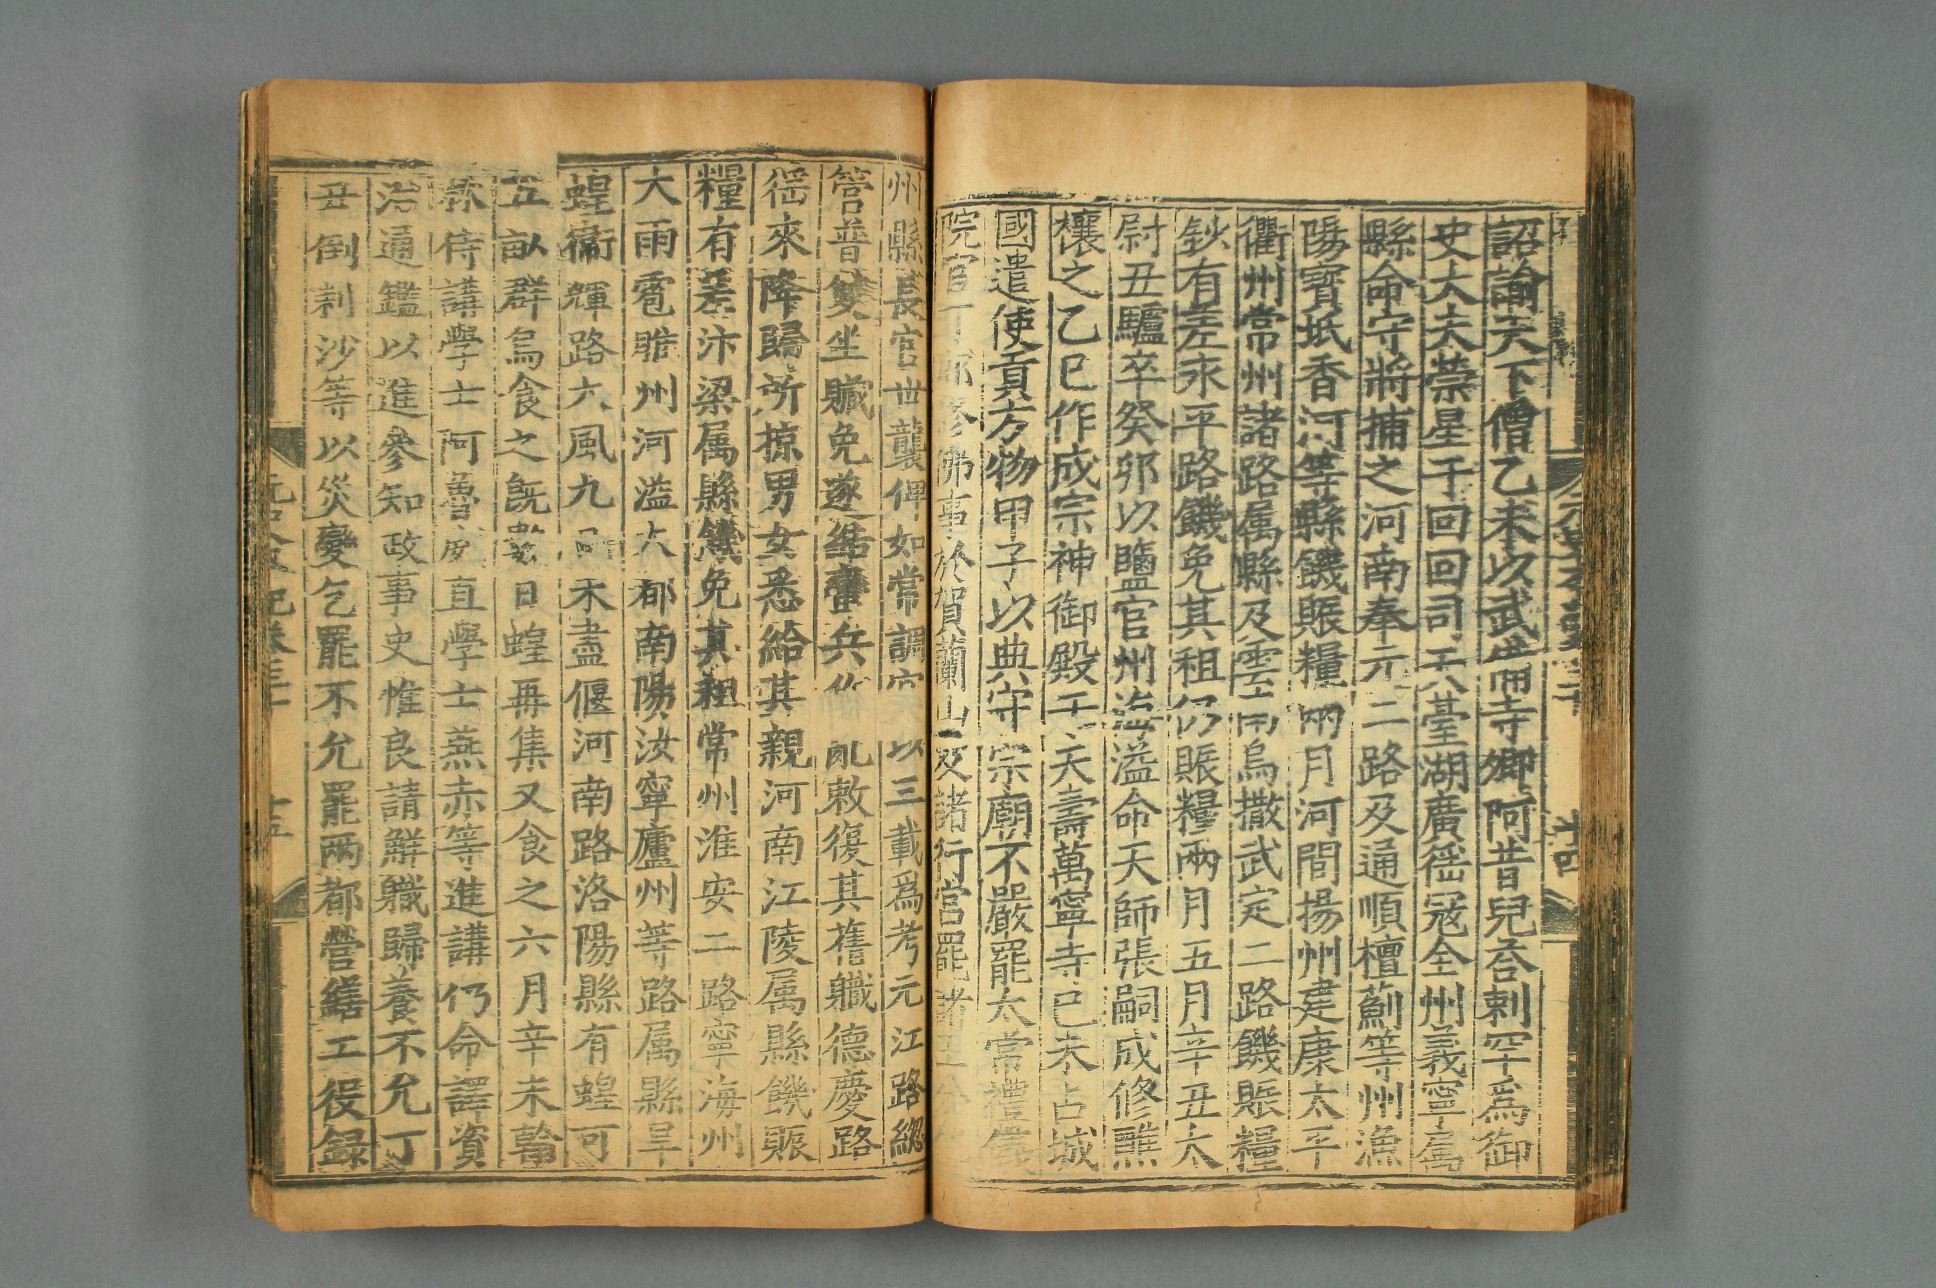 元史本紀卷三十 十四
詔諭天下僧乙未以武備寺卿阿昔兒荅剌罕爲御
史大夫滎星于回回司天臺湖廣徭冦全州義寧属
縣命守將捕之河南奉元二路及通順檀薊等州漁
陽寳坻香河等縣饑賑糧兩月河間揚州建康太平
衢州常州諸路属縣及雲南烏撒武定二路饑賑糧
鈔有差永平路饑免其租仍賑糧兩月五月辛丑太
尉丑驢卒癸卯以鹽官州海溢命天師張嗣成修醮
禳之乙巳作成宗神御殿于天壽萬寧寺己未占城
國遣使貢方物甲子以典守宗廟不嚴罷太常禮儀
院官丁卯修佛事於賀蘭山及諸行宮罷諸
州縣長官世襲俾如常調官以三載爲考元江路總
管普雙坐贓免遂結蠻兵作亂敕復其舊職德慶路
徭來降歸所掠男女悉給其親河南江陵属縣饑賑
糧有差汴梁属縣饑免其租常州淮安二路寧海州
大雨雹睢州河溢大都南陽汝寧廬州等路属縣旱
蝗衞輝路大風九日禾盡偃河南路洛陽縣有蝗可
五畝群烏食之既數日蝗再集又食之六月辛未翰
林侍講學士阿魯威直學士燕赤等進講仍命譯資
治通鑑以進參知政事史惟良請解職歸養不允丁
丑倒剌沙等以災變乞罷不允罷兩都營繕工役録
元史本紀卷三十 十五